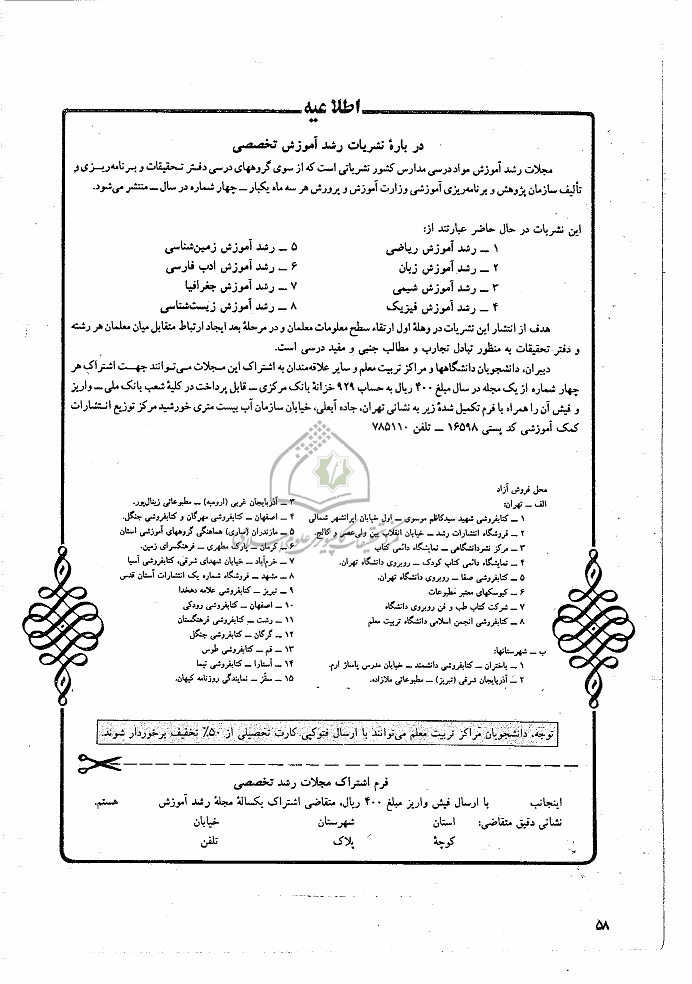 اطلاعیه
در بارهٔ نشریات رشد آموزش تخصصی
مجلات رشد آموزش مواد درسی مدارس کشور نشریاتی است که از سوی گروههای درسی دفتر تحقیقات و برنامه‌ریزی و
تألیف سازمان پژوهش و برنامه‌ریزی آموزشی وزارت آموزش و پرورش هر سه ماه یکبار ــ چهار شماره در سال ــ منتشر می‌شود.
این نشریات در حال حاضر عبارتند از:
۱ ــ رشد آموزش ریاضی
۲ ــ رشد آموزش زبان
۳ ــ رشد آموزش شیمی
۴ ــ رشد آموزش فیزیک
۵ ــ رشد آموزش زمین‌شناسی
۶ ــ رشد آموزش ادب فارسی
۷ ــ رشد آموزش جغرافیا
۸ ــ رشد آموزش زیست‌شناسی
هدف از انتشار این نشریات در وهلهٔ اول ارتقاء سطح معلومات معلمان و در مرحلهٔ بعد ایجاد ارتباط متقابل میان معلمان هر رشته
و دفتر تحقیقات به منظور تبادل تجارب و مطالب جنبی و مفید درسی است.
دبیران، دانشجویان دانشگاهها و مراکز تربیت معلم و سایر علاقه‌مندان به اشتراک این مجلات می‌توانند جهت اشتراک هر
چهار شماره از یک مجله در سال مبلغ ۴۰۰ ریال به حساب ۹۲۹ خزانهٔ بانک مرکزی ــ قابل پرداخت در کلیهٔ شعب بانک ملی ــ واریز
و فیش آن را همراه با فرم تکمیل شدهٔ زیر به نشانی تهران، جاده آبعلی، خیابان سازمان آب بیست متری خورشید مرکز توزیع انتشارات
کمک آموزشی کد پستی ۱۶۵۹۸ ــ تلفن ۷۸۵۱۱۰
محل فروش آزاد
الف ــ تهران:
۱ ــ کتابفروشی شهید سیدکاظم موسوی ــ اول خیابان ایرانشهر شمالی
۲ ــ فروشگاه انتشارات رشد ــ خیابان انقلاب بین ولی‌عصر و کالج.
۳ ــ مرکز نشردانشگاهی ــ نمایشگاه دائمی کتاب
۴ ــ نمایشگاه دائمی کتاب کودک ــ روبروی دانشگاه تهران.
۵ ــ کتابفروشی صفا ــ روبروی دانشگاه تهران.
۶ ــ کیوسکهای معتبر مطبوعات
۷ ــ شرکت کتاب طب و فن روبروی دانشگاه
۸ ــ کتابفروشی انجمن اسلامی دانشگاه تربیت معلم
ب ــ شهرستانها:
۱ ــ باختران ــ کتابفروشی دانشمند ــ خیابان مدرس پاساژ ارم.
۲ ــ آذربایجان شرقی (تبریز) ــ مطبوعاتی ملازاده.
۳ ــ آذربایجان غربی (ارومیه) ــ مطبوعاتی زینال‌پور.
۴ ــ اصفهان ــ کتابفروشی مهرگان و کتابفروشی جنگل.
۵ ــ مازندران (ساری) هماهنگی گروههای آموزشی استان
۶ ــ کرمان ــ پارک مطهری ــ فرهنگسرای زمین.
۷ ــ خرم‌آباد ــ خیابان شهدای شرقی، کتابفروشی آسیا
۸ ــ مشهد ــ فروشگاه شماره یک انتشارات آستان قدس
۹ ــ تبریز ــ کتابفروشی علامه دهخدا
۱۰ ــ اصفهان ــ کتابفروشی رودکی
۱۱ ــ رشت ــ کتابفروشی فرهنگستان
۱۲ ــ گرگان ــ کتابفروشی جنگل
۱۳ ــ قم ــ کتابفروشی طوس
۱۴ ــ آستارا ــ کتابفروشی نیما
۱۵ ــ سقز ــ نمایندگی روزنامه کیهان.
توجه. دانشجویان مراکز تربیت معلم می‌توانند با ارسال فتوکپی کارت تحصیلی از ۵۰٪ تخفیف برخوردار شوند.
فرم اشتراک مجلات رشد تخصصی
اینجانب با ارسال فیش واریز مبلغ ۴۰۰ ریال، متقاضی اشتراک یکسالهٔ مجلهٔ رشد آموزش هستم.
نشانی دقیق متقاضی: استان شهرستان خیابان
کوچهٔ پلاک تلفن
۵۸